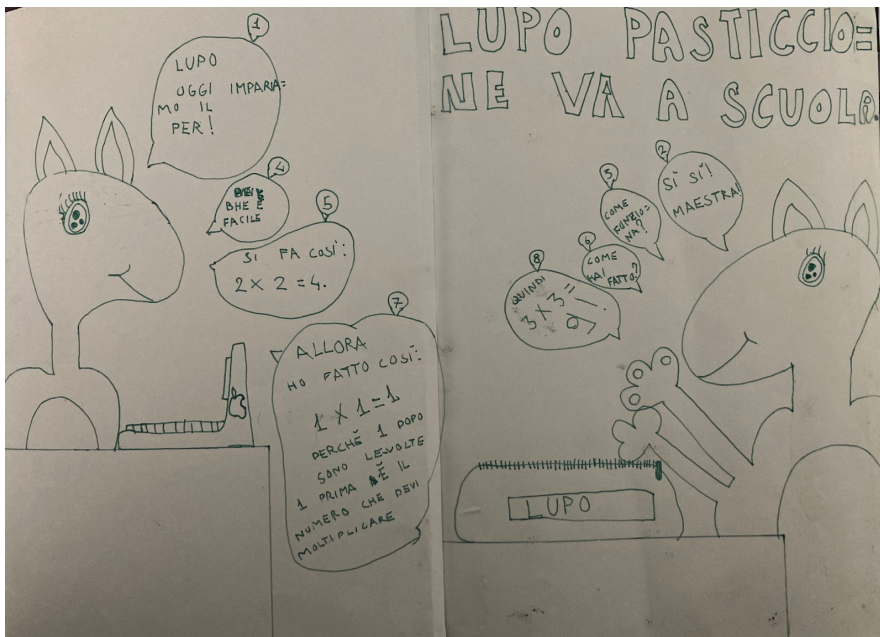 LUPO PASTICCIO=
NE VA A SCUOLA.
1
LUPO
OGGI IMPARIA=
MO IL
PER!
2
SÌ SÌ!
MAESTRA!
3
COME
FONZIO=
NA?
4
BHE È
FACILE
5
SI FA COSÌ:
2 X 2 = 4.
6
COME
HAI
FATTO?
7
ALLORA
HO FATTO COSÌ:
1 X 1 = 1
PERCHÈ 1 DOPO
SONO LE VOLTE
1 PRIMA È IL
NUMERO CHE DEVI
MOLTIPLICARE
8
QUINDI
3 X 3 =
9!!
LUPO